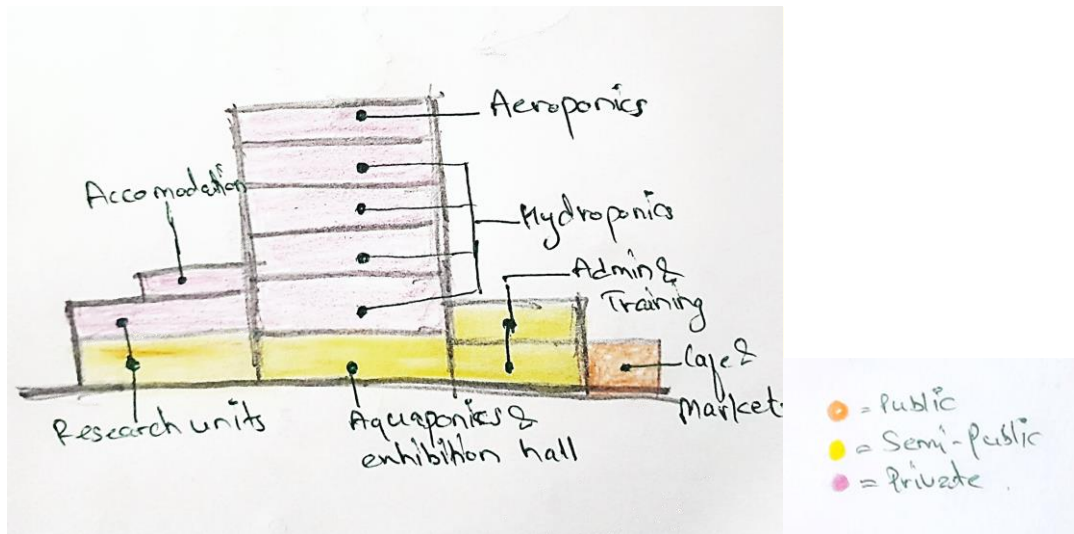 Aeroponics
Accomodation
Hydroponics
Admin &
Training
Cafe &
Market
Research units
Aquaponics &
exhibition hall
= Public
= Semi-Public
= Private